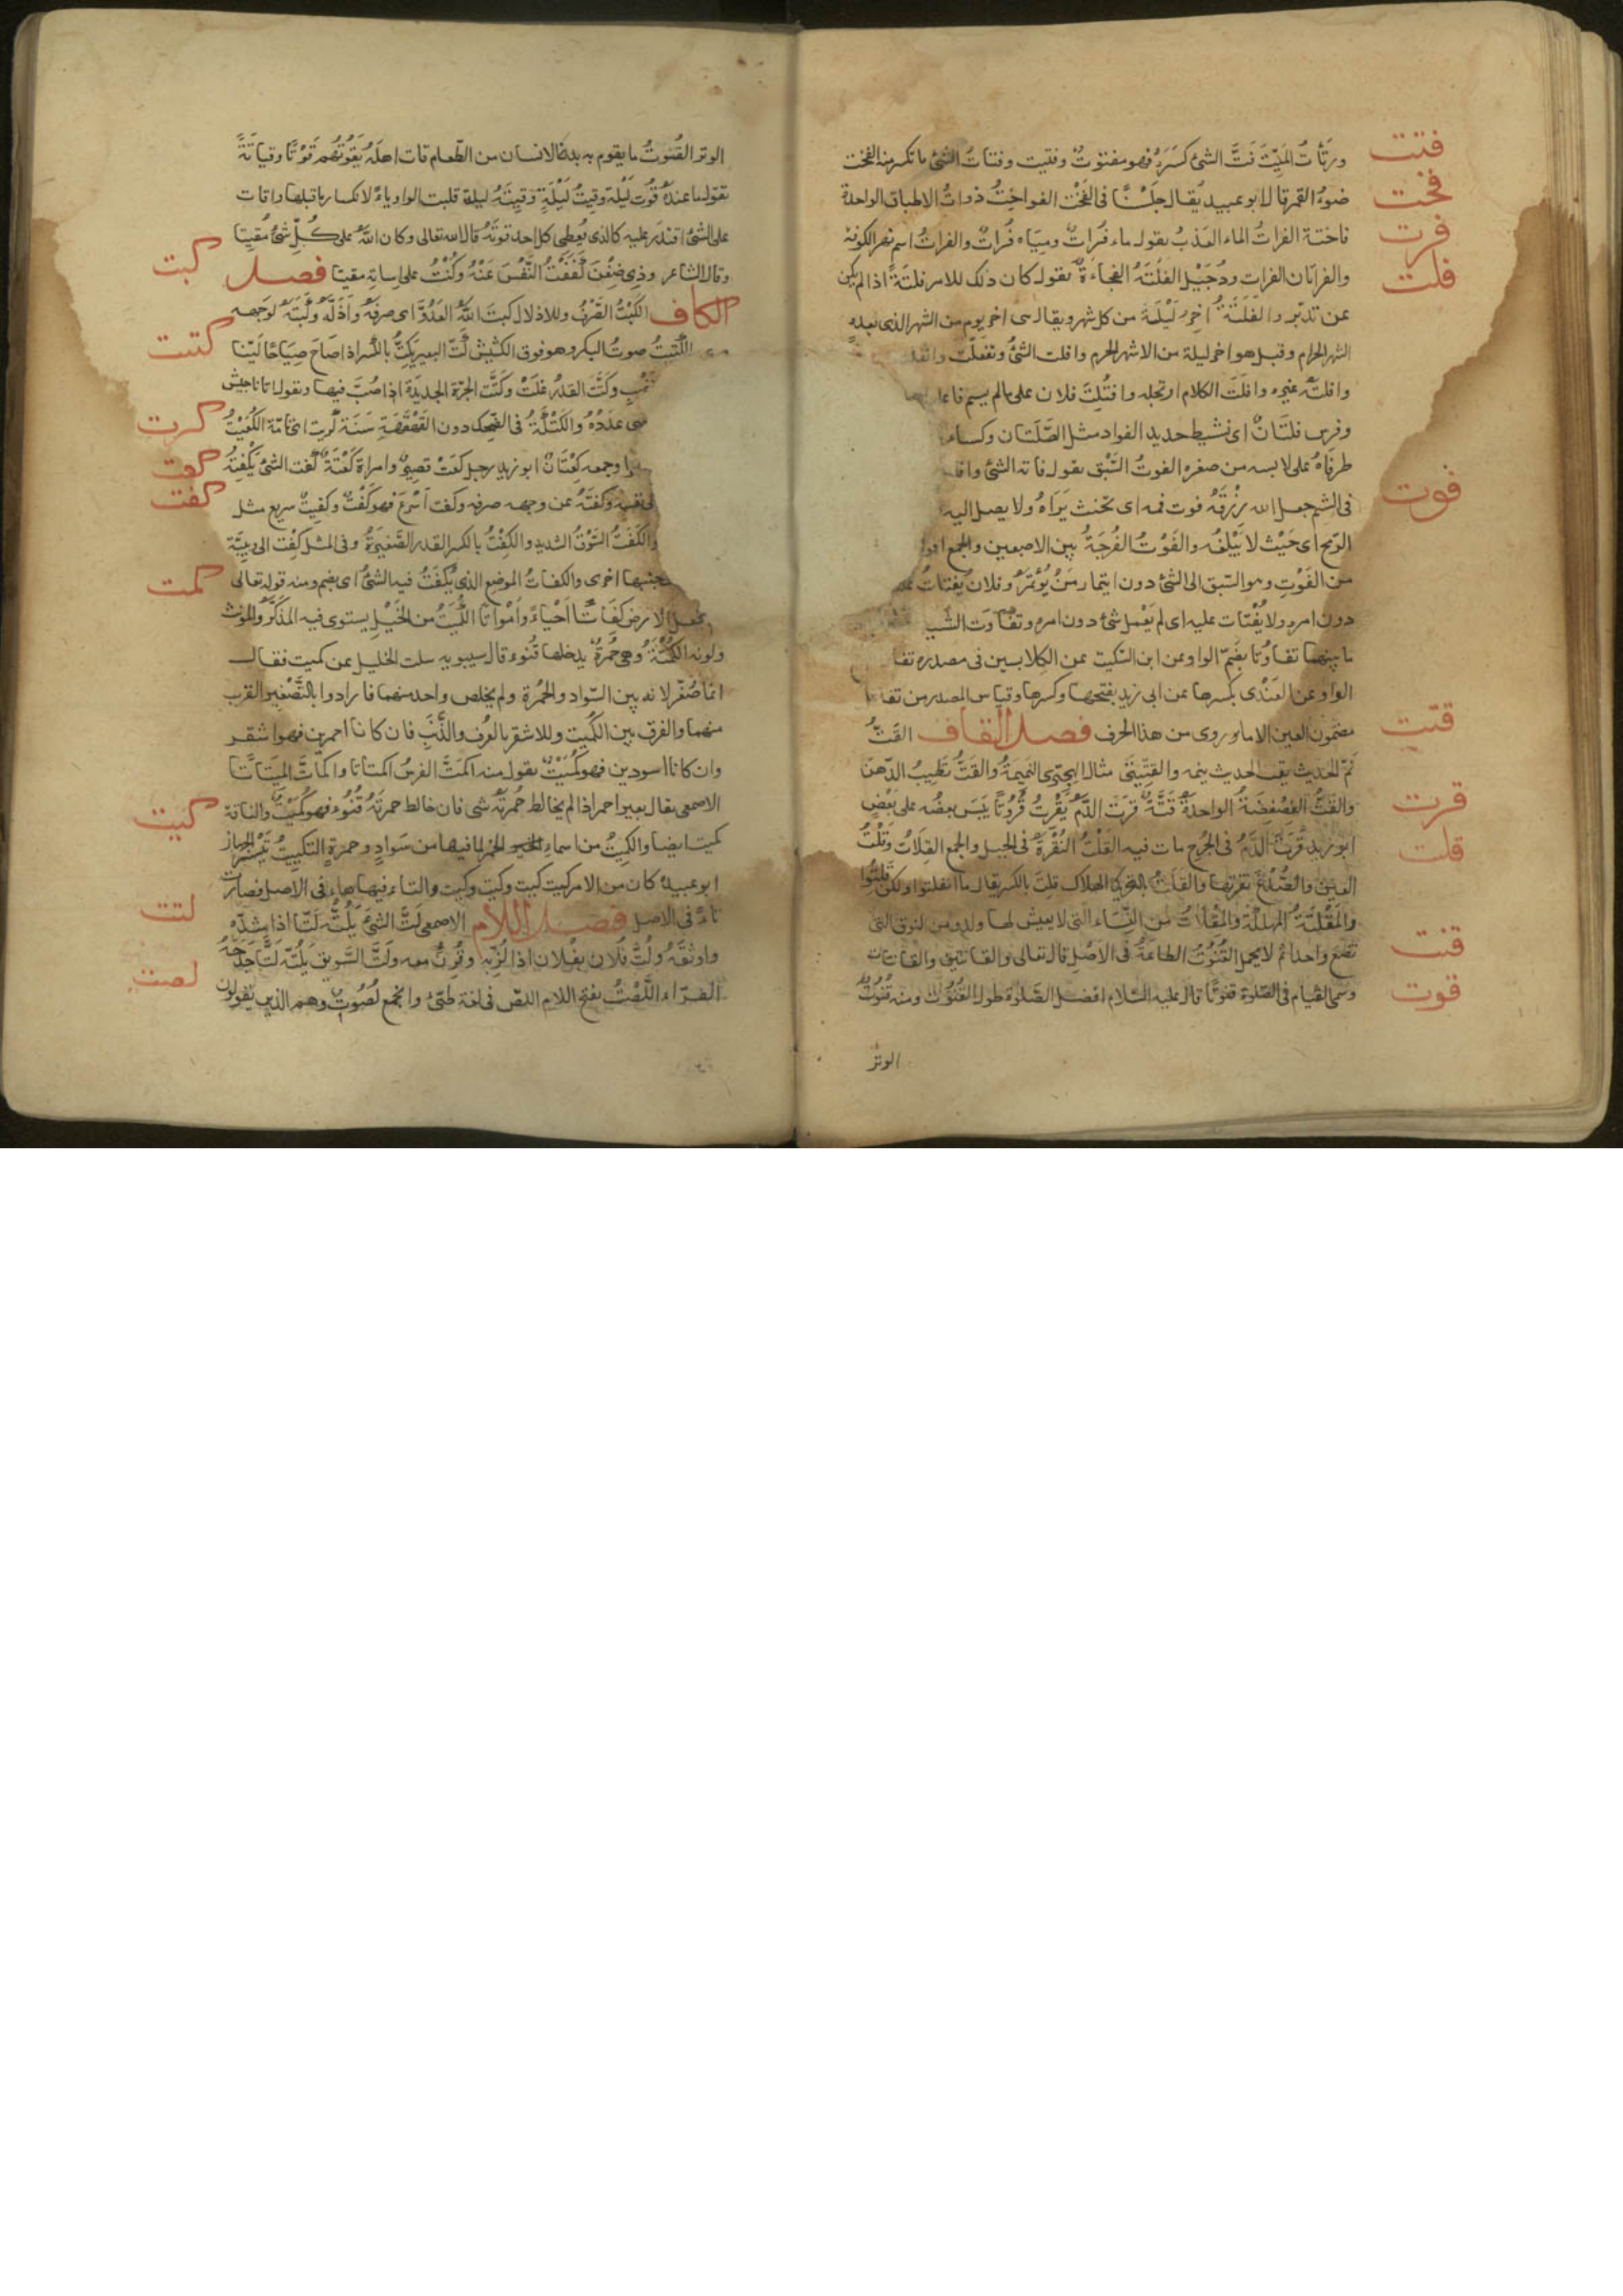 فتت
ورُتَاتُ المَيِّتَ فَتَّ الشئ كَسَرَهُ فهو مفتوتٌ وفتيت وفتاتُ الشئ ما تكسر منه الفخت
فخت
ضوءُ القمر قال ابو عبيد يُقال جلسنا فى الفَخْت الفواخِتُ ذواتُ الاطباق الواحدة
فرت
فاختة الفراتُ الماء العَذبُ يقول ماء فُراتٌ ومِيَاه فُراتٌ والفراتُ اسم نهر الكوفة
فلت
والفراتان الفرات ودُجَيْل الفَلْتَةُ الفجاءَةُ يقول كان ذلك للامر فلتَةً اذا لم يكن
عن تدبّر والفَلْتَةُ آخِرُ لَيْلَة من كل شهر ويقال هى اخر يوم من الشهر الذى بعده
الشهر الحرام وقيل هو اخر ليلة من الاشهر الحرم وافلت الشئُ وتفلّت وانفلـ
وافلتَه غيره وافلَتَ الكلام ارتجله وافتُلِتَ فلان على مالم يسم فاعله
وفرس فلتَانٌ اى نشيط حديد الفواد مثل الصَّلَتان وكساء
طرفاهُ على لابسه من صغره الفوتُ السَّبْق يقول فاته الشئ وافـ
فوت
فى الشتم جعل الله رزْقَهُ فوت فمه اى تحنث يَرَاهُ ولا يصل اليه
الرّمح اى حَيْث لا يَبْلغُه والفَوْتُ الفُرجَةُ بين الاصبعين والجمع افوا
من الفَوْتِ وهو السّبق الى الشئ دون ايتمار مَنْ يُؤْتَمَرُ وفلان يَفتَاتُ عليه
دون امره ولا يُفْتَات عليه اى لم يَعْمل شئ دون امره وتَفَاوَت الشيـ
ما بينهما تفاوُتا بضمّ الواو عن ابن السّكيت عن الكلابيين فى مصدره تفا
الواو عن العَنْبَرى بكسرها عن ابى زيد بفتحها وكسرها وقياس المصدر من تفا
قتت
مضمون العين الا ما روى من هذا الحرف فصل القاف القَتُّ
نَمّ الحديث يَقت الحديث ينمه والقتّيتى مثال الهجّيرى النميمةُ والقَتُّ تطييبُ الدّهن
قرت
والقَتُّ الفِصْفِصَةُ الواحدة قَتَّةٌ قَرَتَ الدَّمُ يَقْرُتُ قُرُوتًا يَبسَ بعضُه على بَعْضٍ
قلت
ابو زيد قَرَتَ الدَّمُ فى الجُرح مات فيه القَلْتُ النُقْرَةُ فى الجبل والجمع القِلَاتُ وقَلْتُ
العين والصُّدْغ نقرتها والقَلَتُ بالتحريك الهلاك قلِتَ بالكسر يقال ما انفلتوا ولكن قَلِتُوا
والمَقْلَتَةُ المهلكة والمِقْلاتُ من النِّسَاء التى لا يعيش لها ولد ومن النوق التى
قنت
تضع واحدا ثم لا يحمل القُنُوتُ الطاعَةُ فى الأَصْل قال تعالى والقانتين والقانتات
قوت
وسمى القيام فى الصّلوة قنوتًا قال عليه السّلام افضل الصّلوة طول القُنُوت ومنه قُنُوتُ
الوتر
الوتر القُوتُ ما يقوم به بدن الانسان من الطّعام قات اهلَهُ يَقُوتُهم قَوْتًا وقِيَاتَةً
يقول ما عنده قُوت لَيْلة وقِيتُ لَيْلَةٍ وقِيتَةُ ليلة قلبت الواو ياءً لانكسار ما قبلها واقات
على الشئ اقتدر عليه كالذى يُعطى كل احد قوتَهُ قال الله تعالى وكان اللهُ على كُلِّ شئٍ مُقيتًا
كبت
وقال الشاعر وذى ضِغْنٍ كَفَفْتُ النَّفْسَ عَنْهُ وَكُنْتُ على اساءتِه مقيتا فصل
الكاف الكَبْتُ الصَّرْفُ والاذلال كبتَ اللهُ العَدُوَّ اى صرفه وأَذَلَّهُ وكَبَتَهُ لوَجهه
كتت
الكَتِيتُ صوتُ البكر وهو فوق الكشيش كتّ البعيرُ يَكِتُّ بالكسر اذا صَاحَ صِيَاحًا لَيّنا
وكَتَّت القدرُ غَلَتْ وكَتَّت الجرّة الجديدَة اذا صُبَّ فيها ويقول اتانا جيش
كرت
عددُهُ والكَتْكَتَةُ فى الضَّحك دون القَهْقَهَةِ سَنَة كريت اى تامّة الكُعَيْتُ
كعت
وجمعه كِعْتَانٌ ابو زيد رجل كَعْت قصير وامراة كَعْتَةٌ كَفت الشئ يَكْفِتُهُ
كفت
وكفتَهُ عن وجهه صرفه وكَفت أَسْرَعَ فهو كَفْتٌ وكَفِيتٌ سريع مثل
والكَفْتُ السَّوْقُ الشديد والكِفْتُ بالكسر القدر الصَّغيرَةُ وفى المثل كِفْت الى وَئِيَّة
كمت
بجنبها اخرى والكفاتُ الموضع الذى يُكْفَتُ فيه الشئُ اى يضم ومنه قوله تعالى
نجعل الارض كِفَاتًا أَحْيَاءً وأَمْوَاتًا الكُمَيْتُ من الخَيْل يستوى فيه المذكّر والمونث
ولونه الكُمْتَةُ وهى حُمْرةٌ يدخلها قُنُوء قال سيبويه سالت الخليل عن كميت فقال
انما صُغِّرَ لانه بين السّواد والحُمْرة ولم يخلص واحد منهما فارادوا بالتَّصْغير القرب
منهما والفرق بين الكُمَيت والاشقر بالعُرْف والذَّنَبِ فان كانا احمرين فهو اشقر
وان كانا اسودين فهو كُمَيْتٌ يقول منه اكمَتَّ الفرسُ اكمتاتا واكمأتّ اكميتاتًا
كيت
الاصمعى يقال بعير احمر اذا لم يخالط حُمرتَه شئ فان خالط حمرتَهُ قُنُوء فهو كُمَيْتٌ والناقة
كميت ايضا والكميتُ من اسماء الخمر لما فيها من سَوادٍ وحمرةٍ التكييتُ تَيْسيرُ الجهاز
ابو عبيدة كان من الامر كيت كيت وكَيتِ وكيت والتاء فيها هاء فى الاصل فصارت
لتت
تاءً فى الاصل فصل اللام الاصمعى لَتَّ الشئَ يَلُتُّه لَتّا اذا شدّهُ
واوثقَهُ ولُتَّ فُلان بفُلان اذا لُزَّ به وقُرِنَ معه ولَتَّ السَّويقَ يَلُتّه لَتًّا جَدَحَهُ
لصت
الفرّاء اللَّصْتُ بفتح اللام اللصّ فى لغة طيّئ والجمع لُصُوتٌ وهم الذين يقولون